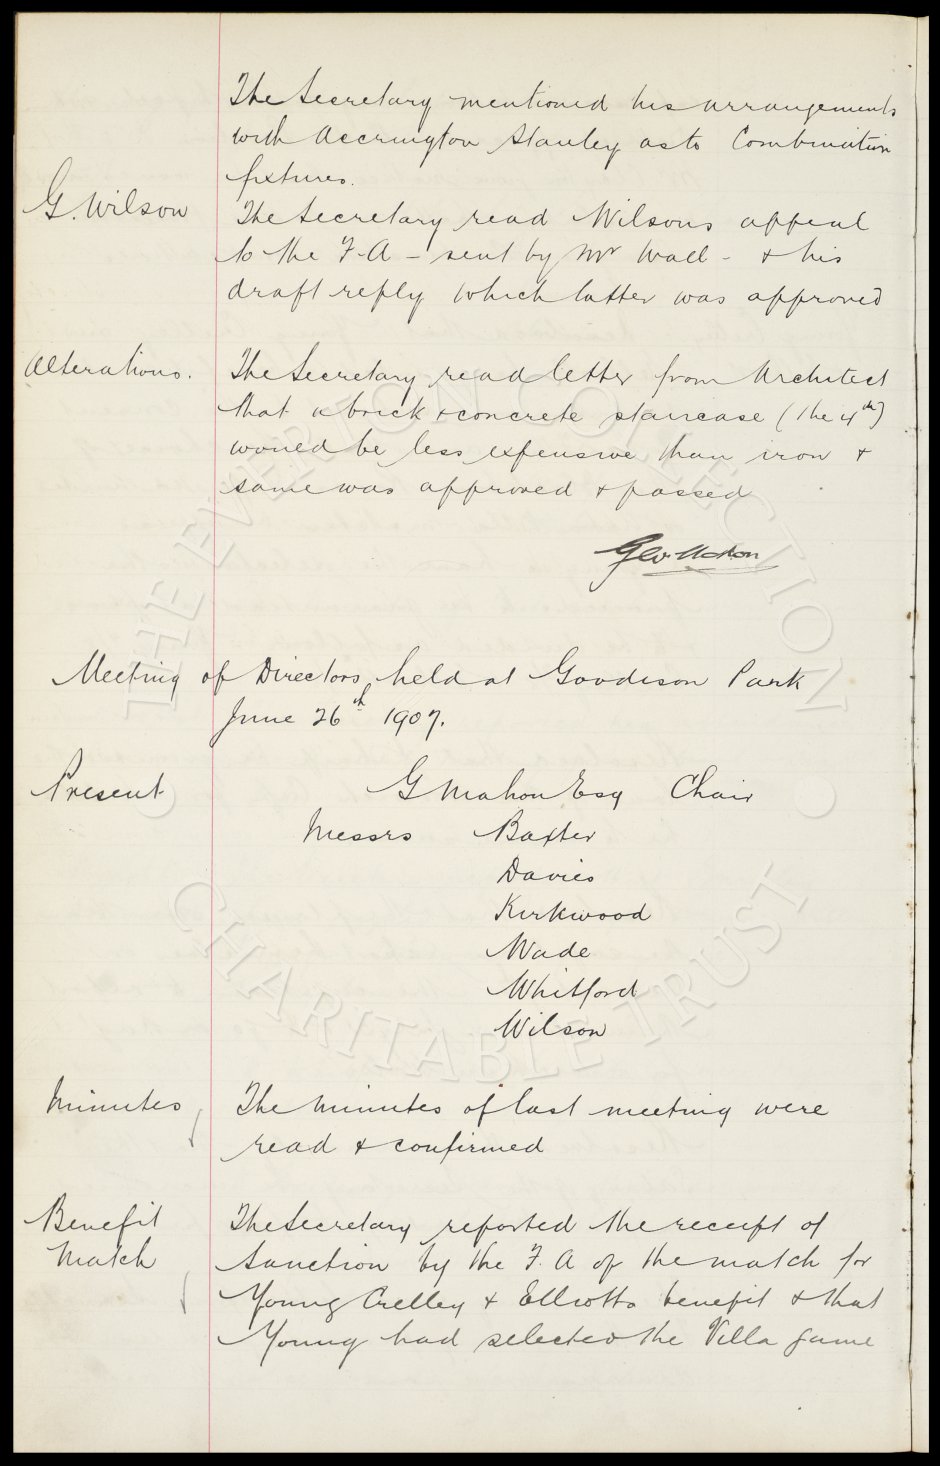 The Secretary mentioned his arrangements
with Accrington Stanley as to Combination
fixtures.
G. Wilson
The Secretary read Wilsons appeal
to the F.A - sent by Mr Wall - & his
draft reply which latter was approved
Alterations.
The Secretary read letter from Architect
that a brick & concrete staircase (the 4th)
would be less expensive than iron &
same was approved & passed
Geo. Mahon
Meeting of Directors, held at Goodison Park
June 26th 1907.
Present
G Mahon Esq Chair
Messrs Baxter
Davies
Kirkwood
Wade
Whitford
Wilson
Minutes
The minutes of last meeting were
read & confirmed
Benefit
Match
The Secretary reported the receipt of
sanction by the F.A of the match for
Young Crelley & Elliotts benefit & that
Young had selected the Villa game
THE EVERTON COLLECTION
CHARITABLE TRUST